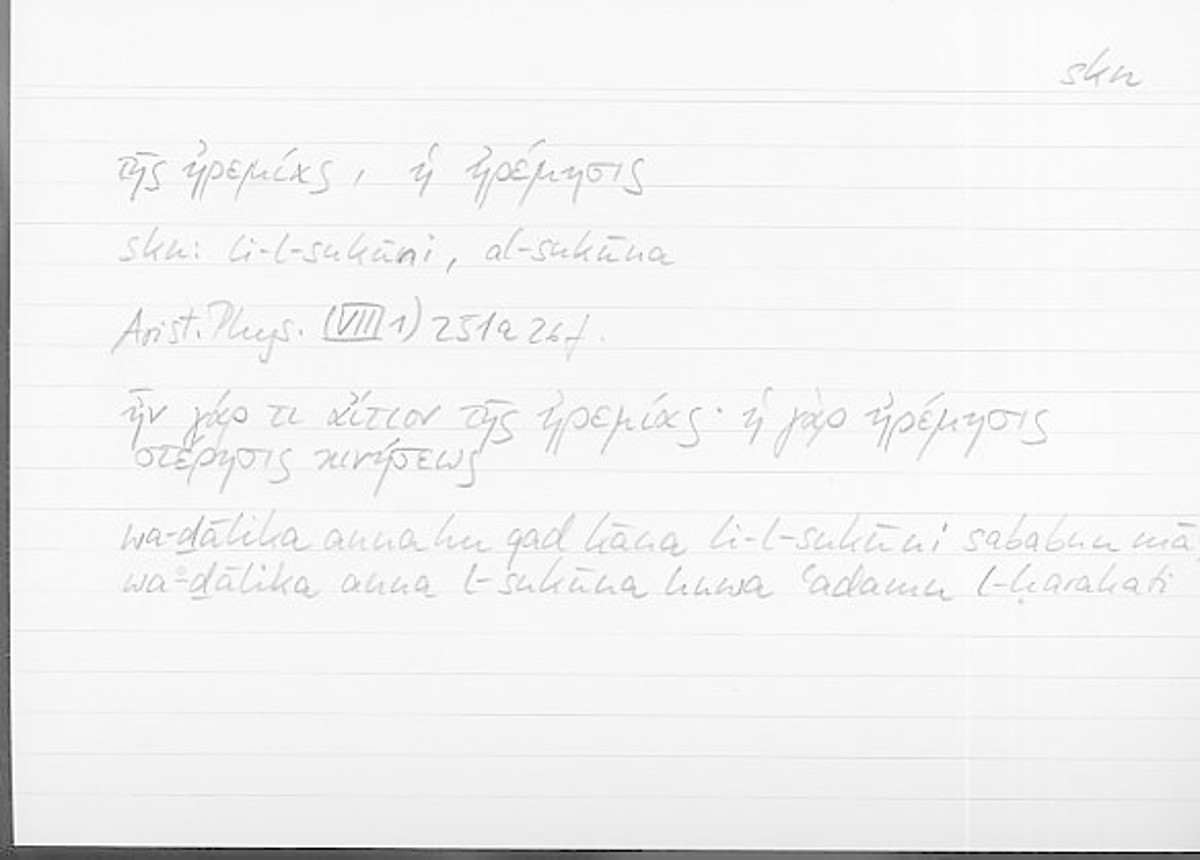 skn
τῆς ἠρεμίας, ἡ ἠρέμησις
skn: li-l-sukūni, al-sukūna
Arist. Phys. (VIII 1) 251a 26f.
ἦν γάρ τι αἴτιον τῆς ἠρεμίας· ἡ γὰρ ἠρέμησις
στέρησις κινήσεως
wa-ḏālika annahu qad kāna li-l-sukūni sababun mā,
wa-ḏālika anna l-sukūna huwa ʿadamu l-ḥarakati